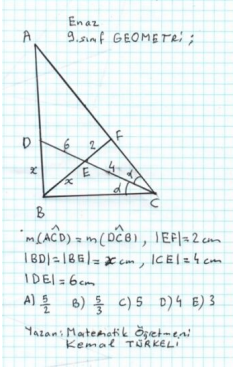 Enaz
9.sınıf GEOMETRİ ;
A
F
D
6
2
E
4
α
x
x
α
B
C
m(AĈD) = m(DĈB) , |EF|=2 cm
|BD|=|BE|= x cm , |CE|=4 cm
|DE|=6 cm
A) 5/2 B) 5/3 C) 5 D) 4 E) 3
Yazan: Matematik Öğretmeni
Kemal TÜRKELİ